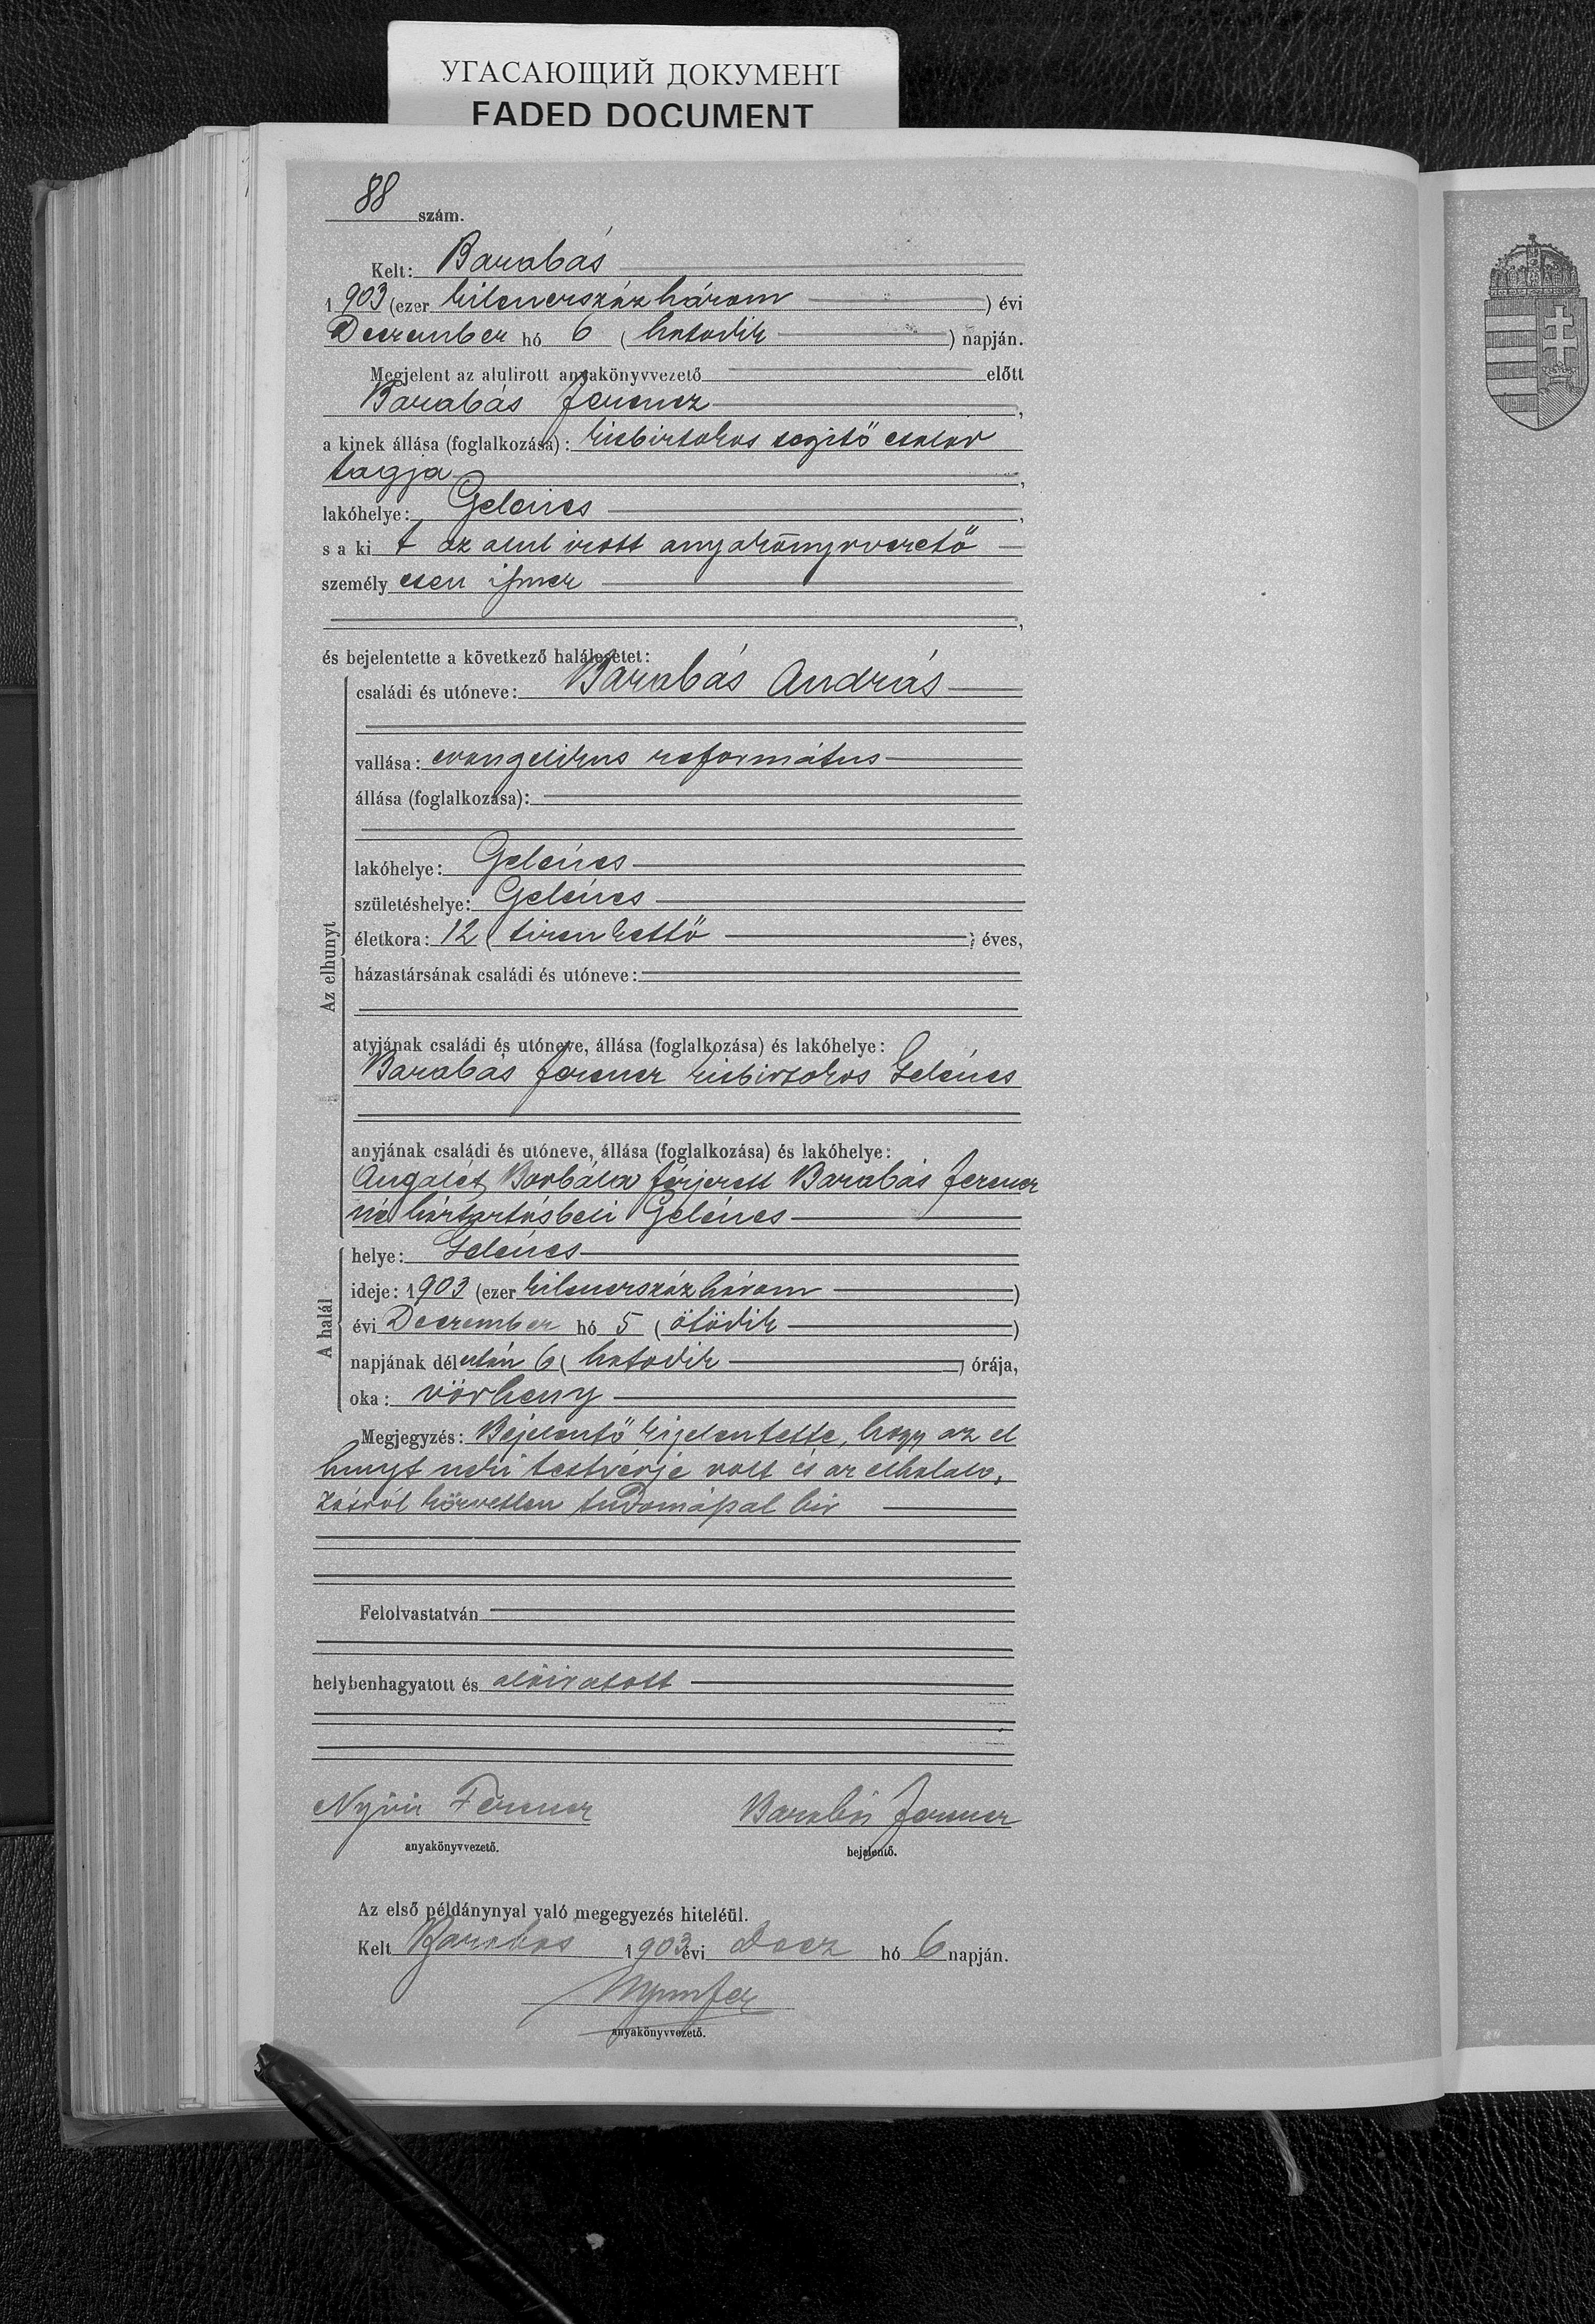 УГАСАЮЩИЙ ДОКУМЕНТ
FADED DOCUMENT
88 szám.
Kelt: Barabás
1903 (ezer kilenczszáz három) évi
December hó 6 (hatodik) napján.
Megjelent az alulirott anyakönyvvezető előtt
Barabás Ferencz,
a kinek állása (foglalkozása): kisbirtokos segitő család
tagja,
lakóhelye: Gelénes,
s a ki t az alul irott anyakönyvvezető
személy esen ismer,
és bejelentette a következő halálesetet:
családi és utóneve: Barabás András
vallása: evangelikus református
állása (foglalkozása):
lakóhelye: Gelénes
születéshelye: Gelénes
életkora: 12 (tizenkettő) éves,
házastársának családi és utóneve:
Az elhunyt
atyjának családi és utóneve, állása (foglalkozása) és lakóhelye:
Barabás Ferencz kisbirtokos Gelénes
anyjának családi és utóneve, állása (foglalkozása) és lakóhelye:
Borbála férjezett Barabás Ferencz
né háztartásbeli Gelénes
helye: Gelénes
ideje: 1903 (ezer kilenczszáz három)
évi December hó 5 (ötödik)
A halál
napjának délután 6 (hatodik) órája,
oka: vörheny
Megjegyzés: Bejelentő kijelentette, hogy az el
hunyt neki testvérje volt és az elhalálo,
zásról közvetlen tudomással bir
Felolvastatván
helybenhagyatott és aláiratott
Ferencz Barabás Ferencz
anyakönyvvezető. bejelentő.
Az első példánynyal való megegyezés hiteléül.
Kelt Barabás 1903 évi Decz hó 6 napján.
anyakönyvvezető.